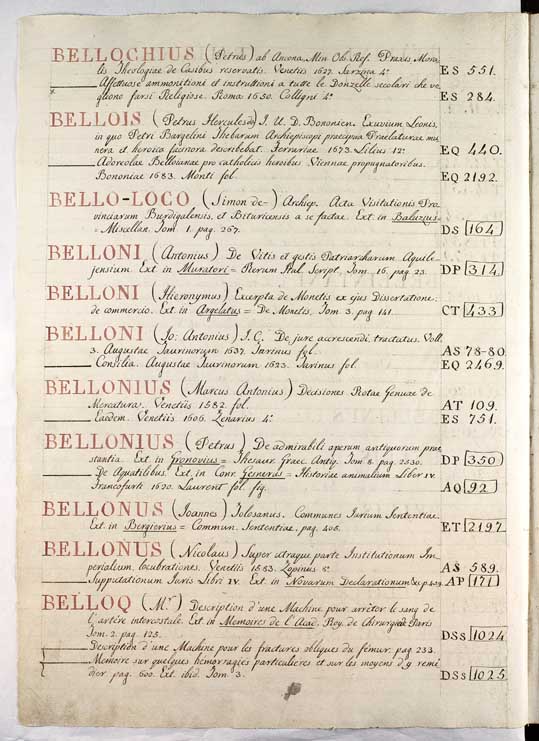 BELLOCHIUS (Petrus) ab Ancona Min. Ob. Ref. Praxis Mora
lis Theologiae de Casibus reservatis. Venetiis 1627. Sarzina 4° ES 551.
Affettuose ammonitioni et instruttioni a tutte le Donzelle secolari che vo
gliono farsi Religiose. Roma 1650. Collegni 4° ES 284.
BELLOIS (Petrus Hercules de) I. U. D. Bononien. Exuvium Leonis,
in quo Petri Bargelini Thebarum Archiepiscopi praecipua Praelaturae mu
nera et heroica facinora describebat. Ferrariae 1673. Lilius 12° EQ 440.
Adoreolae Belloisanae pro catholicis heroibus Viennae propugnatoribus.
Bononiae 1683. Monti fol. EQ 2192.
BELLO-LOCO (Simon de-) Archiep. Acta Visitationis Pro
vinciarum Burdigalensis, et Bituricensis a se factae. Ext. in Baluzius
= Miscellan. Tom. 1. pag. 267. DS 164
BELLONI (Antonius) De Vitis et gestis Patriarcharum Aquile-
jensium. Ext. in Muratori = Rerum Ital. Script. Tom. 16. pag. 23. DP 314
BELLONI (Hieronymus) Excerpta de Monetis ex ejus Dissertatione
de commercio. Ext. in Argelatus = De Monetis. Tom. 3. pag. 141. CT 433
BELLONI (Jo: Antonius) I. C. De jure accrescendi, tractatus. Voll.
3. Augustae Taurinorum 1637. Tarinus fol. AS 78-80.
Consilia. Augustae Taurinorum 1623. Tarinus fol. EQ 2469.
BELLONIUS (Marcus Antonius) Decisiones Rotae Genuae de
Mercatura. Venetiis 1582. fol. AT 109.
Eaedem. Venetiis 1606. Zenarius 4° ES 751.
BELLONIUS (Petrus) De admirabili operum antiquorum prae
stantia. Ext. in Gronovius = Thesaur. Graec. Antiq. Tom. 8. pag. 2530. DP 350
De Aquatilibus. Ext. in Conr. Gesnerus = Historiae animalium Liber IV.
Francofurti 1620. Laurent. fol. fig. AQ 92
BELLONUS (Joannes) Tolosanus. Communes Jurium Sententiae.
Ext. in Bergierius = Commun. Sententiae. pag. 406. ET 2197
BELLONUS (Nicolaus) Super utraque parte Institutionum Im
perialium, lucubrationes. Venetiis 1583. Zopinus 8° AS 589.
Supputationum Juris Libri IV. Ext. in Novarum Declarationum &c p. 409. AP 171
BELLOQ (M.r) Description d'une Machine pour arrêter le sang de
l'artère intercostale. Ext. in Memoires de l'Acad. Roy. de Chirurgie de Paris
Tom. 2. pag. 125. DSS 1024
Description d'une Machine pour les fractures obliques du femur. pag. 233.
Memoire sur quelques hémoragies particulieres et sur les moyens d'y remé
dier pag. 600. Ext. ibid. Tom. 3. DSS 1025